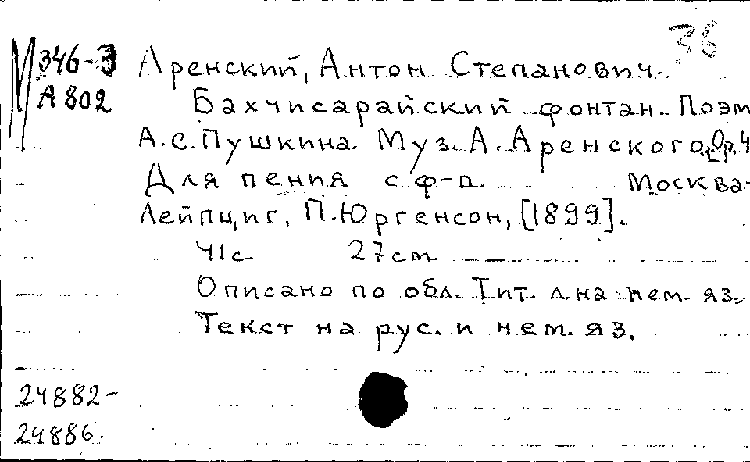 38
М 346-3 Аренский, Антон Степанович.
А 802 Бахчисарайский фонтан. Поэм
А.С. Пушкина. Муз. А. Аренского, Op. 4
Для пения с ф-п. Москва-
Лейпциг, П. Юргенсон, [1899].
41с 27см
Описано по обл. Тит. л. на нем. яз.
Текст на рус. и нем. яз.
24882-
24886